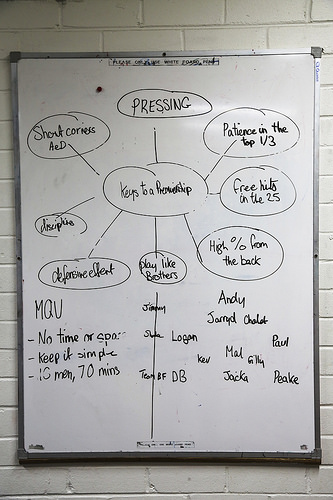 PLEASE ONLY USE WHITE BOARD PENS
PRESSING
Short corners
A&D
Patience in the
top 1/3
Keys to a Premiership
Free hits
in the 25
discipline
High % from
the back
defensive effort
play like
Brothers
MOU
- No time or space
- Keep it simple
- 16 men, 70 mins
Jimmy
Logan
Team BF
DB
Andy
Jarryd Chalet
Paul
Kev
Mal
Gilly
Jacka
Peake